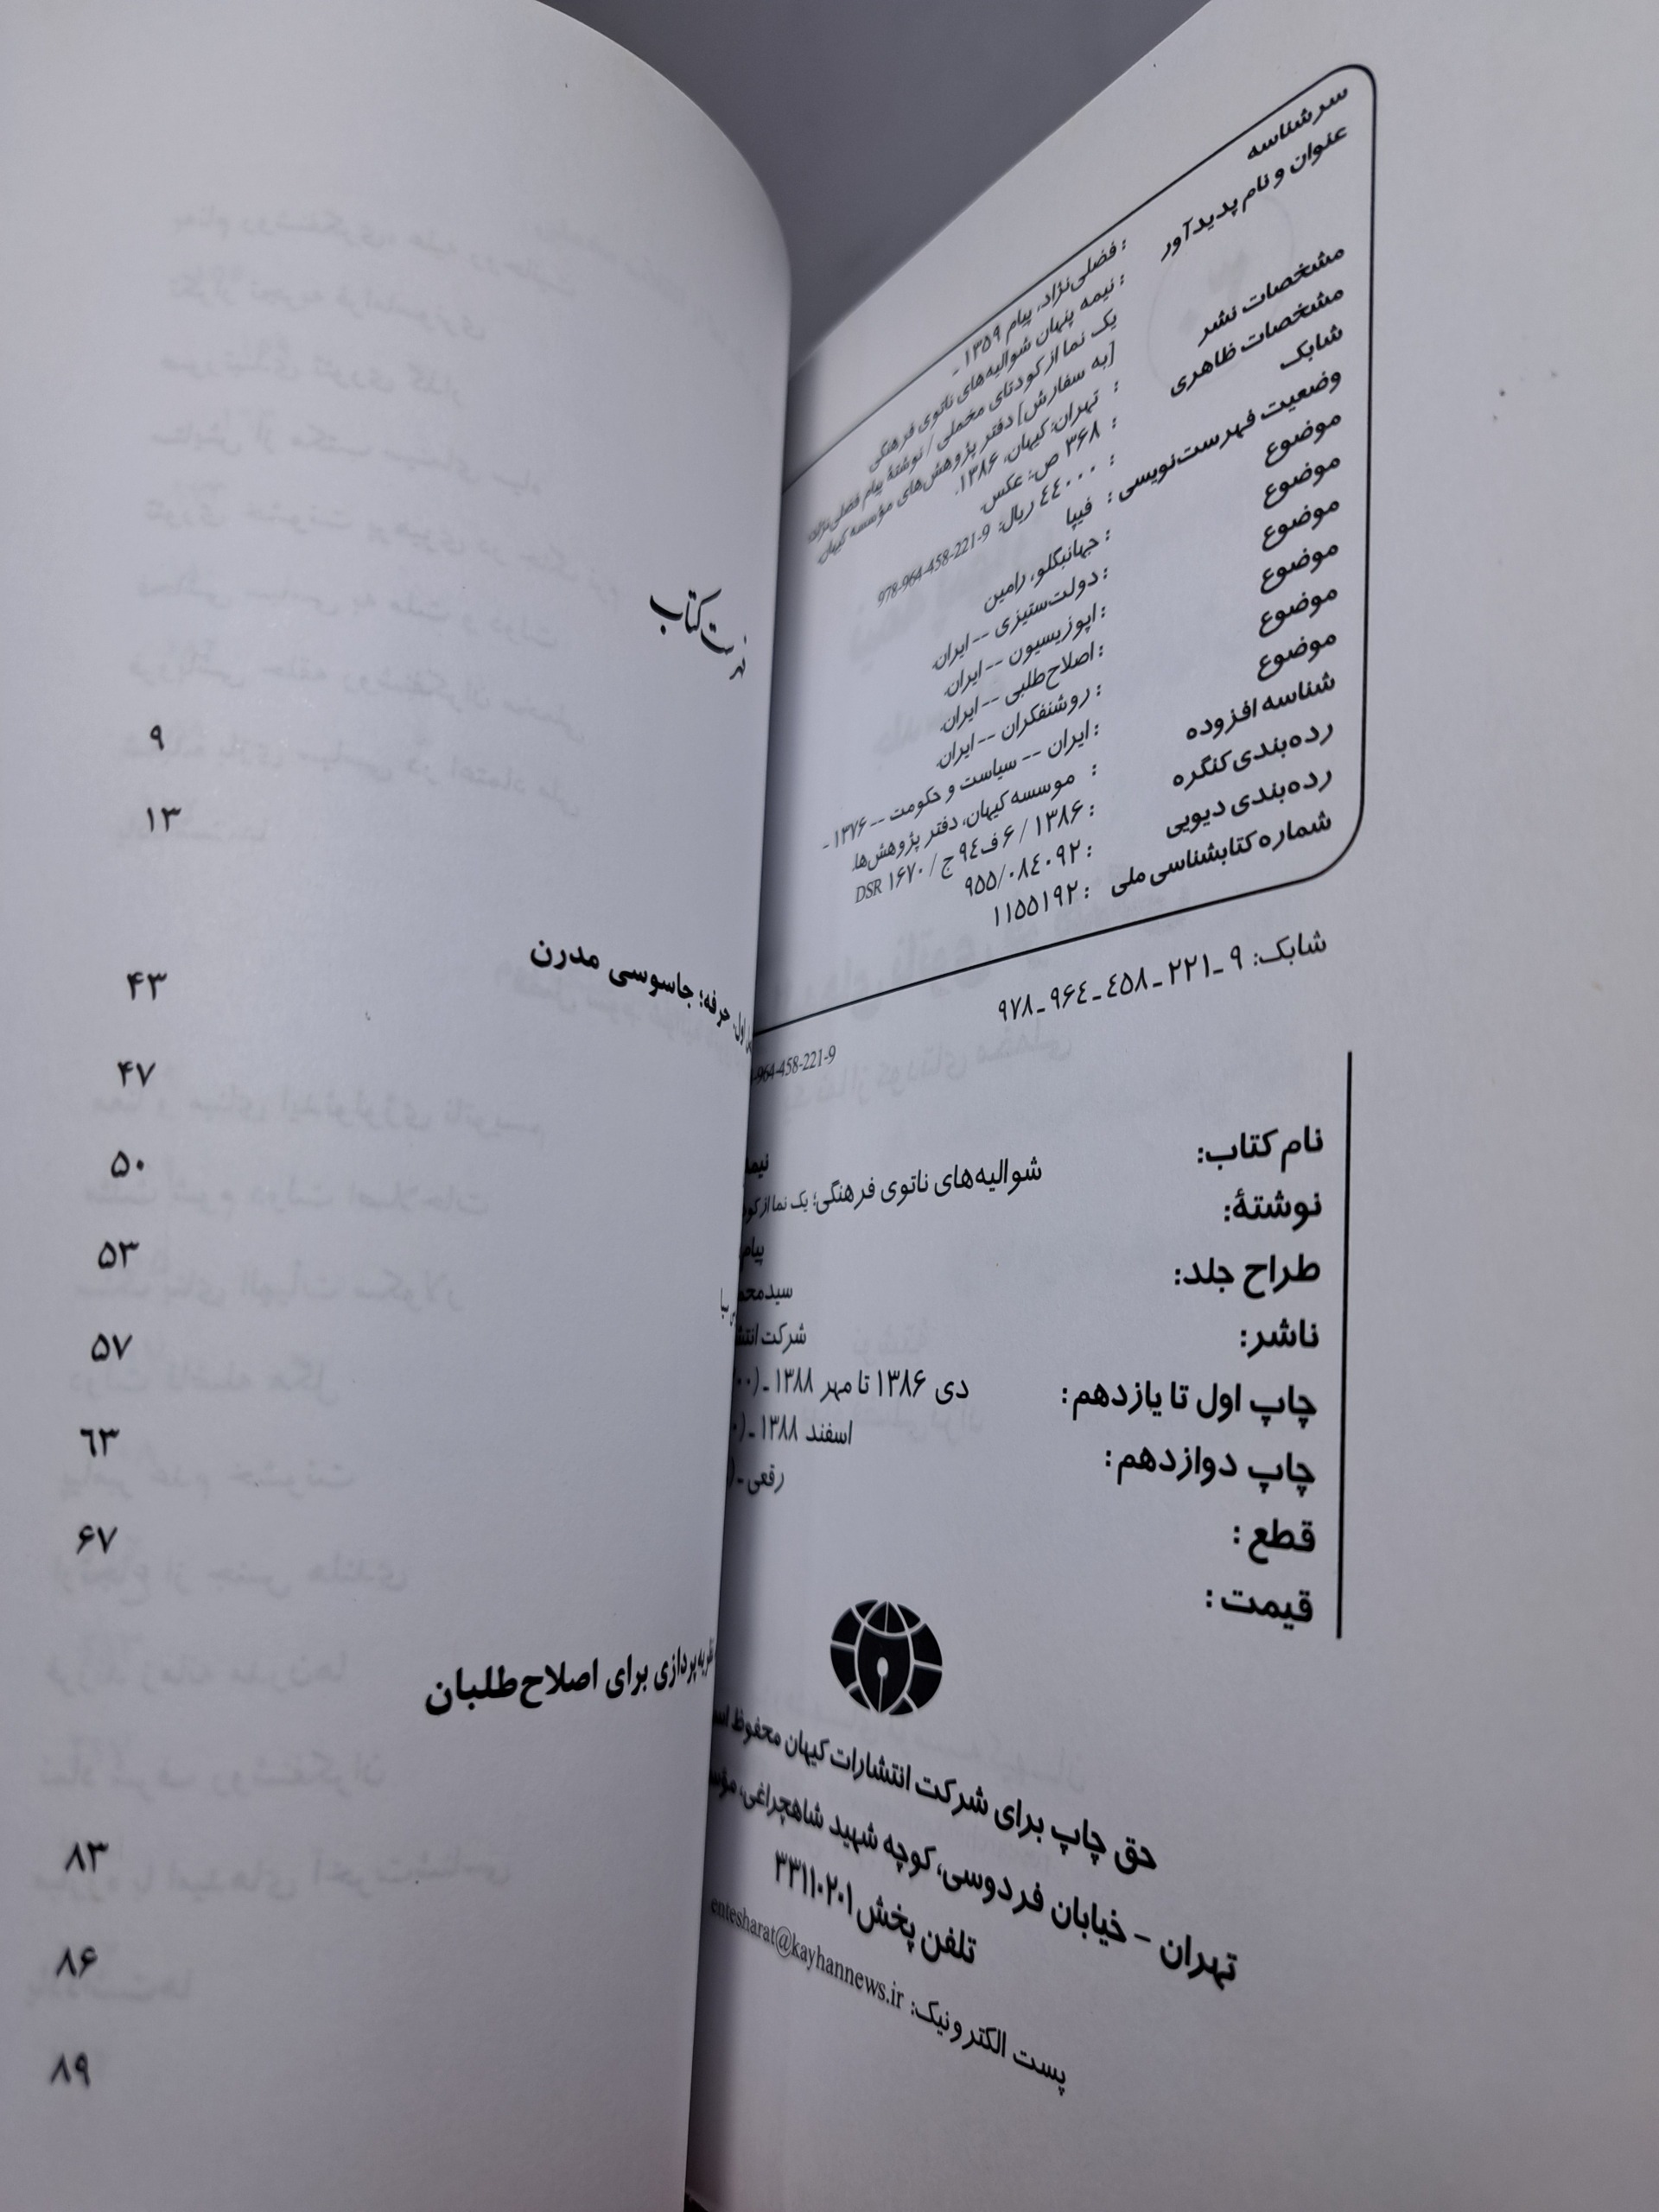 سرشناسه : فضلی‌نژاد، پیام ۱۳۵۹ -
عنوان و نام پدیدآور : نیمه پنهان شوالیه‌های ناتوی فرهنگی
یک نما از کودتای مخملی / نوشتهٔ پیام فضلی‌نژاد؛
[به سفارش] دفتر پژوهش‌های مؤسسه کیهان.
مشخصات نشر : تهران: کیهان، ۱۳۸۶.
مشخصات ظاهری : ۳۶۸ ص: عکس.
شابک : ٤٤٠٠٠ ریال: 978-964-458-221-9
وضعیت فهرست‌نویسی : فیپا
موضوع : جهانبگلو، رامین
موضوع : دولت‌ستیزی -- ایران.
موضوع : اپوزیسیون -- ایران.
موضوع : اصلاح‌طلبی -- ایران.
موضوع : روشنفکران -- ایران.
موضوع : ایران -- سیاست و حکومت -- ۱۳۷۶ -
شناسه افزوده : موسسه کیهان، دفتر پژوهش‌ها.
رده‌بندی کنگره : ۱۳۸۶ / ۶ف۹٤ ج / ۱۶۷۰ DSR
رده‌بندی دیویی : ۹۵۵/۰۸٤۰۹۲
شماره کتابشناسی ملی : ۱۱۵۵۱۹۲
شابک: ۹ـ۲۲۱ـ٤۵۸ـ۹۶٤ـ۹۷۸
-964-458-221-9
نام کتاب:
شوالیه‌های ناتوی فرهنگی؛ یک نما از
نوشتهٔ:
طراح جلد:
ناشر: شرکت
چاپ اول تا یازدهم: دی ۱۳۸۶ تا مهر ۱۳۸۸ ـ
چاپ دوازدهم: اسفند ۱۳۸۸ ـ
قطع : رقعی ـ
قیمت :
حق چاپ برای شرکت انتشارات کیهان محفوظ
تهران - خیابان فردوسی، کوچه شهید شاهچراغی،
تلفن پخش ۳۳۱۱۰۲۰۱
پست الکترونیک: entesharat@kayhannews.ir
فهرست کتاب
۹
۱۳
اول، حرفه؛ جاسوسی مدرن
۴۳
۴۷
۵۰
۵۳
۵۷
٦۳
۶۷
پردازی برای اصلاح‌طلبان
۸۳
۸۶
۸۹